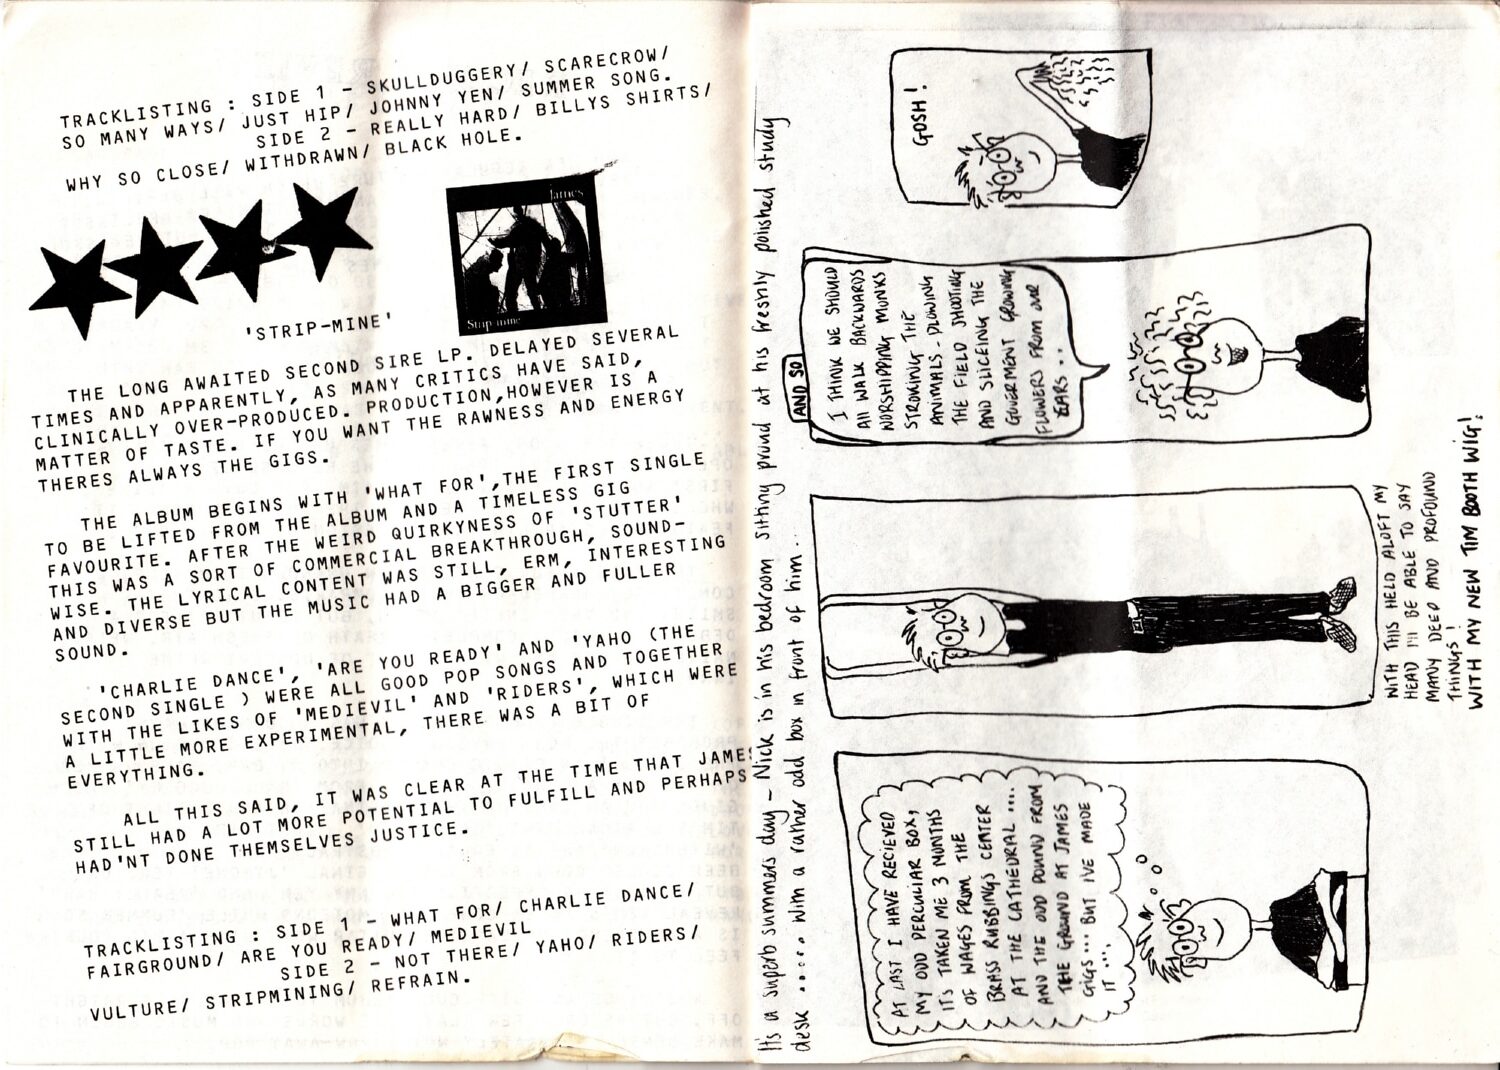 TRACKLISTING : SIDE 1 - SKULLDUGGERY/ SCARECROW/
SO MANY WAYS/ JUST HIP/ JOHNNY YEN/ SUMMER SONG.
SIDE 2 - REALLY HARD/ BILLYS SHIRTS/
WHY SO CLOSE/ WITHDRAWN/ BLACK HOLE.
james
Strip-mine
'STRIP-MINE'
THE LONG AWAITED SECOND SIRE LP. DELAYED SEVERAL
TIMES AND APPARENTLY, AS MANY CRITICS HAVE SAID,
CLINICALLY OVER-PRODUCED. PRODUCTION,HOWEVER IS A
MATTER OF TASTE. IF YOU WANT THE RAWNESS AND ENERGY
THERES ALWAYS THE GIGS.
THE ALBUM BEGINS WITH 'WHAT FOR',THE FIRST SINGLE
TO BE LIFTED FROM THE ALBUM AND A TIMELESS GIG
FAVOURITE. AFTER THE WEIRD QUIRKYNESS OF 'STUTTER'
THIS WAS A SORT OF COMMERCIAL BREAKTHROUGH, SOUND-
WISE. THE LYRICAL CONTENT WAS STILL, ERM, INTERESTING
AND DIVERSE BUT THE MUSIC HAD A BIGGER AND FULLER
SOUND.
'CHARLIE DANCE', 'ARE YOU READY' AND 'YAHO (THE
SECOND SINGLE ) WERE ALL GOOD POP SONGS AND TOGETHER
WITH THE LIKES OF 'MEDIEVIL' AND 'RIDERS', WHICH WERE
A LITTLE MORE EXPERIMENTAL, THERE WAS A BIT OF
EVERYTHING.
ALL THIS SAID, IT WAS CLEAR AT THE TIME THAT JAMES
STILL HAD A LOT MORE POTENTIAL TO FULFILL AND PERHAPS
HAD'NT DONE THEMSELVES JUSTICE.
TRACKLISTING : SIDE 1 - WHAT FOR/ CHARLIE DANCE/
FAIRGROUND/ ARE YOU READY/ MEDIEVIL
SIDE 2 - NOT THERE/ YAHO/ RIDERS/
VULTURE/ STRIPMINING/ REFRAIN.
Its a superb summers day - Nick is in his bedroom sitting proud at his freshly polished study
desk ..... with a rather odd box in front of him...
AT LAST I HAVE RECIEVED
MY ODD PERCULIAR BOX,
ITS TAKEN ME 3 MONTHS
OF WAGES FROM THE
BRASS RUBBINGS CENTER
AT THE CATHEDRAL ....
AND THE ODD POUND FROM
THE GROUND AT JAMES
GIGS... BUT I'VE MADE
IT...
WITH THIS HELD ALOFT MY
HEAD I'LL BE ABLE TO SAY
MANY DEEP AND PROFOUND
THINGS!
WITH MY NEW TIM BOOTH WIG!
AND SO
I THINK WE SHOULD
All WALK BACKWARDS
WORSHIPPING MONKS
STROKING THE
ANIMALS - PLOWING
THE FIELD SHOOTING
AND SLICEING THE
GOVERMENT GROWING
FLOWERS FROM OUR
EARS...
GOSH!